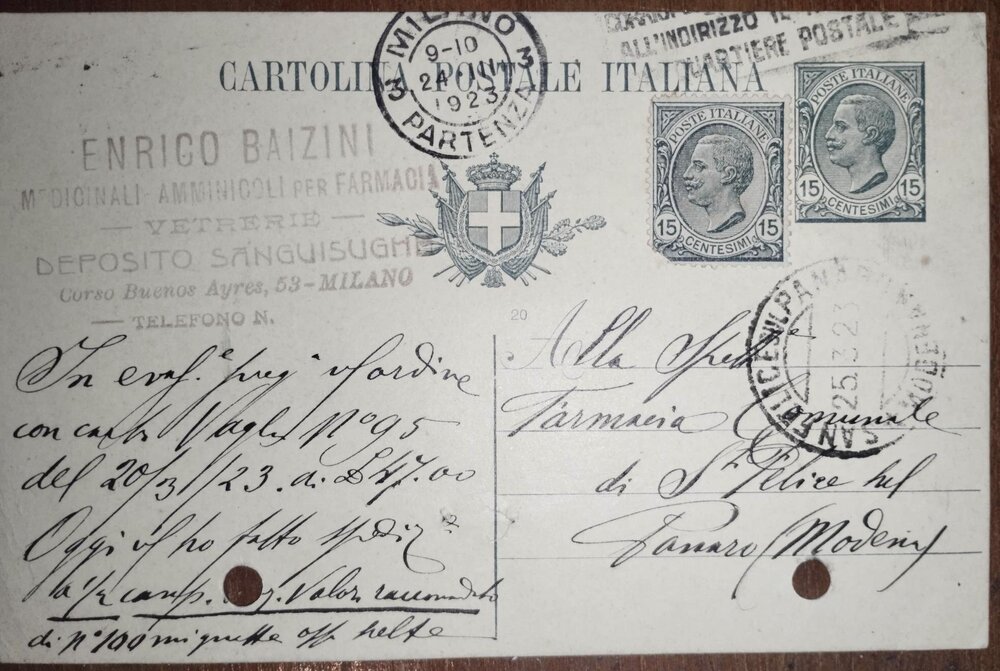 CARTOLINA POSTALE ITALIANA
MILANO 3
9-10
24 III
1923
3 PARTENZA
ALL'INDIRIZZO IL
QUARTIERE POSTALE
POSTE ITALIANE
15 15
CENTESIMI
POSTE ITALIANE
15 15
CENTESIMI
ENRICO BAIZINI
MEDICINALI AMMINICOLI PER FARMACIA
— VETRERIE —
DEPOSITO SANGUISUGHE
Corso Buenos Ayres, 53 - MILANO
— TELEFONO N.
20
SAN FELICE SUL PANARO
25.3.23
MODENA
In evas.e preg. ordine
con carta Vaglia No 95
del 20/3/23. di £ 47.00
Oggi ho fatto spediz.e
a 1/2 camp. Valor raccomandato
di No 100 mignatte off. scelte
Alla Spett.
Farmacia Comunale
di S. Felice sul
Panaro (Modena)